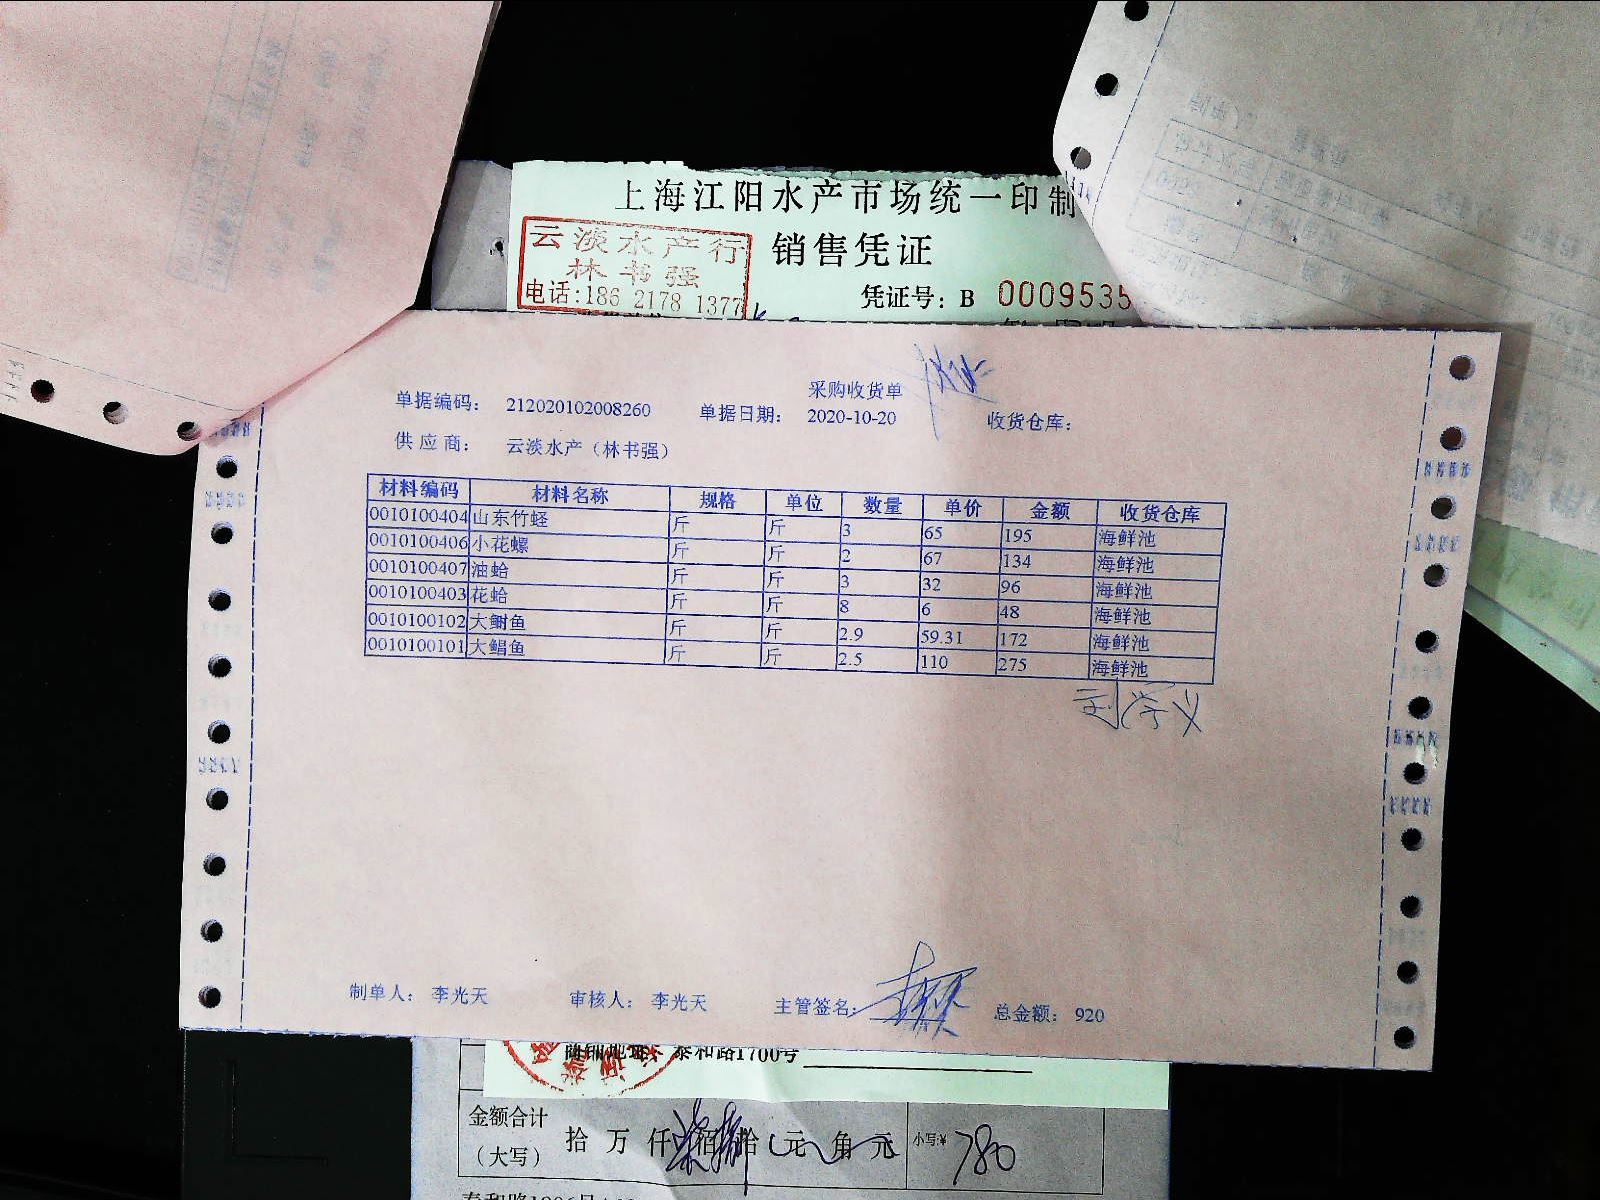 上海江阳水产市场统一印制
销售凭证
云淡水产行
林书强
电话:186 2178 1377
凭证号: B 0009535
采购收货单
单据编码: 212020102008260 单据日期: 2020-10-20 收货仓库:
供应商: 云淡水产（林书强）
材料编码 材料名称 规格 单位 数量 单价 金额 收货仓库
0010100404 山东竹蛏 斤 斤 3 65 195 海鲜池
0010100406 小花螺 斤 斤 2 67 134 海鲜池
0010100407 油蛤 斤 斤 3 32 96 海鲜池
0010100403 花蛤 斤 斤 8 6 48 海鲜池
0010100102 大鲥鱼 斤 斤 2.9 59.31 172 海鲜池
0010100101 大鲳鱼 斤 斤 2.5 110 275 海鲜池
刘学义
制单人: 李光天 审核人: 李光天 主管签名: 总金额: 920
泰和路1700号
金额合计
（大写） 拾 万 仟 佰 拾 元 角 元 小写:¥ 780